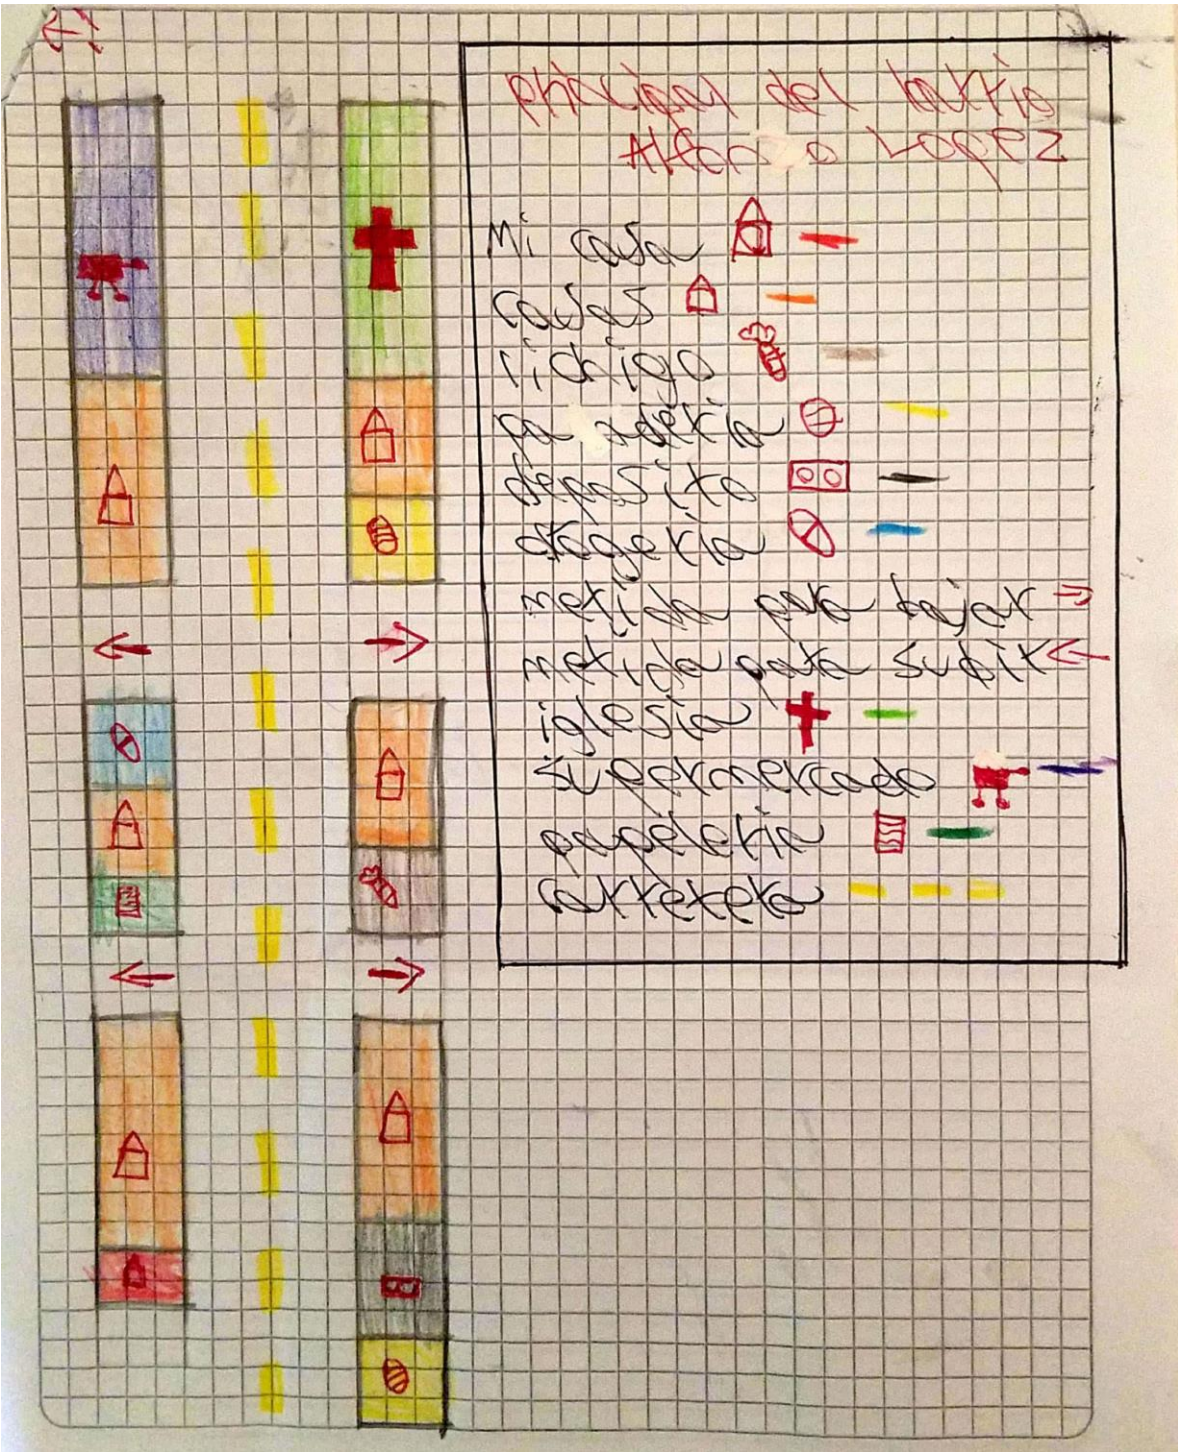 principal del barrio
Alfonzo Lopez
Mi casa
casas
lichigo
panaderia
deposito
drogeria
metida para bajar
metida para subir
iglesia
supermercado
papeleria
carretera